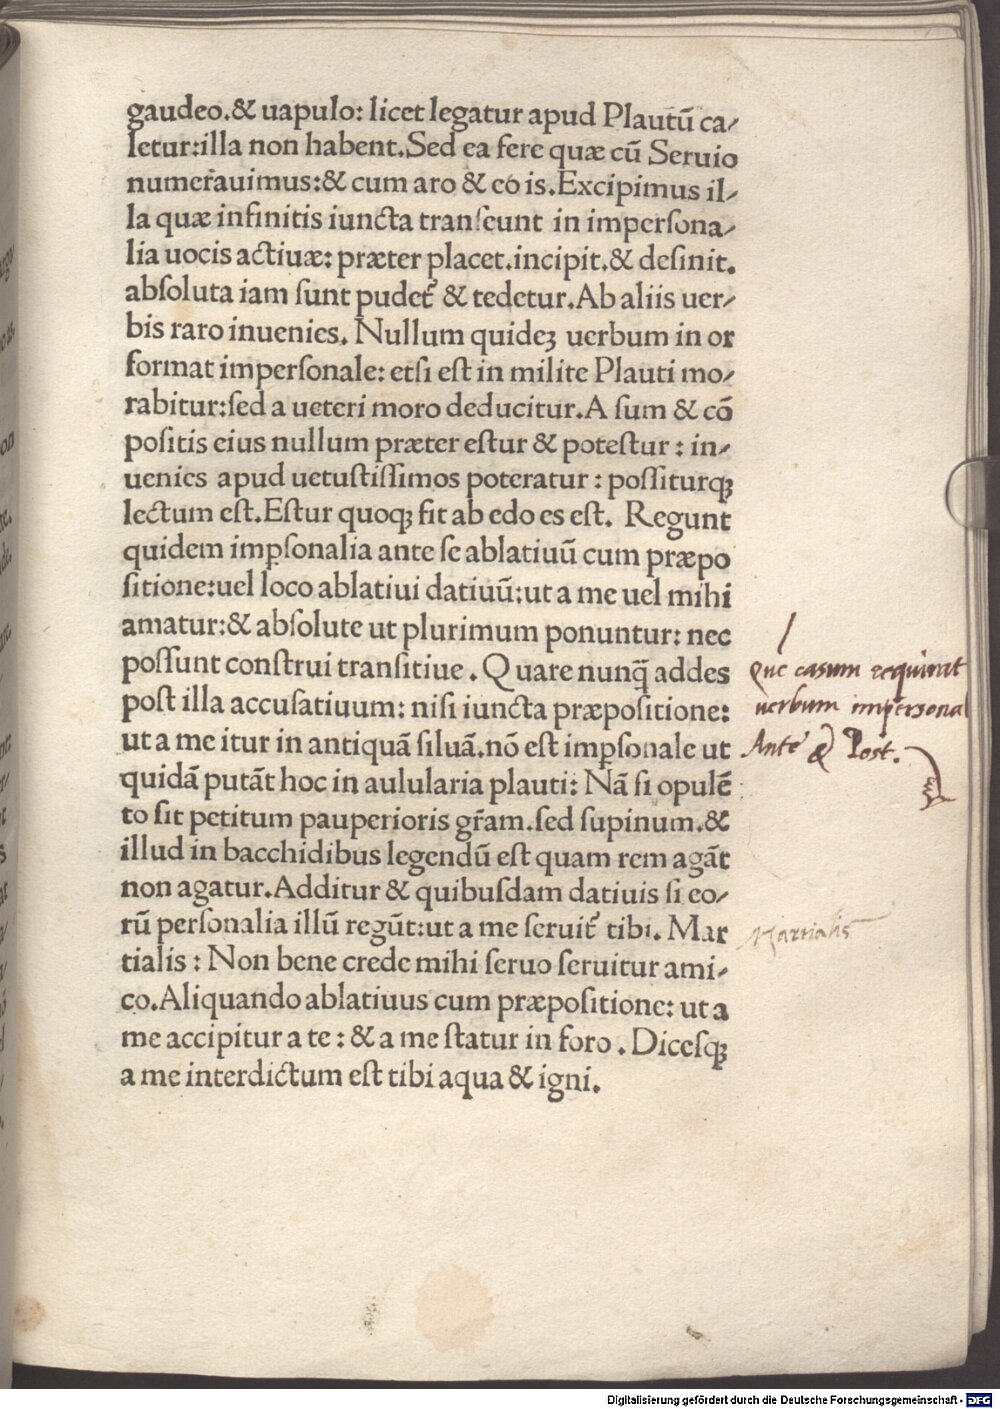 gaudeo.& uapulo: licet legatur apud Plautū ca⸗
letur:illa non habent.Sed ea fere quæ cū Seruio
numer̄auimus:& cum aro & eo is.Excipimus il⸗
la quæ infinitis iuncta tranſeunt in imperſona⸗
lia uocis actiuæ: præter placet.incipit.& deſinit.
abſoluta iam ſunt pudet᷑ & tedetur.Ab aliis uer⸗
bis raro inuenies. Nullum quideꝫ uerbum in or
format imperſonale: etſi eſt in milite Plauti mo⸗
rabitur:ſed a ueteri moro deducitur.A ſum & cō
poſitis eius nullum præter eſtur & poteſtur : in⸗
uenies apud uetuſtiſſimos poteratur : poſſiturqꝫ
lectum eſt.Eſtur quoqꝫ fit ab edo es eſt. Regunt
quidem imꝑſonalia ante ſe ablatiuū cum præpo
ſitione:uel loco ablatiui datiuū:ut a me uel mihi
amatur:& abſolute ut plurimum ponuntur: nec
poſſunt conſtrui tranſitiue . Quare nunq̄ addes
poſt illa accuſatiuum: niſi iuncta præpoſitione:
ut a me itur in antiquā ſiluā.nō eſt imꝑſonale ut
quidā putāt hoc in aulularia plauti: Nā ſi opulē
to ſit petitum pauperioris gr̄am.ſed ſupinum.&
illud in bacchidibus legendū eſt quam rem agāt
non agatur.Additur & quibuſdam datiuis ſi eo⸗
rū perſonalia illū regūt:ut a me ſeruit᷑ tibi. Mar
tialis : Non bene crede mihi ſeruo ſeruitur ami⸗
co.Aliquando ablatiuus cum præpoſitione: ut a
me accipitur a te : & a me ſtatur in foro . Diceſqꝫ
a me interdictum eſt tibi aqua & igni.
Que casum requirat
uerbum impersonal
Ante & Post.
Martialis
Digitalisierung gefördert durch die Deutsche Forschungsgemeinschaft - DFG